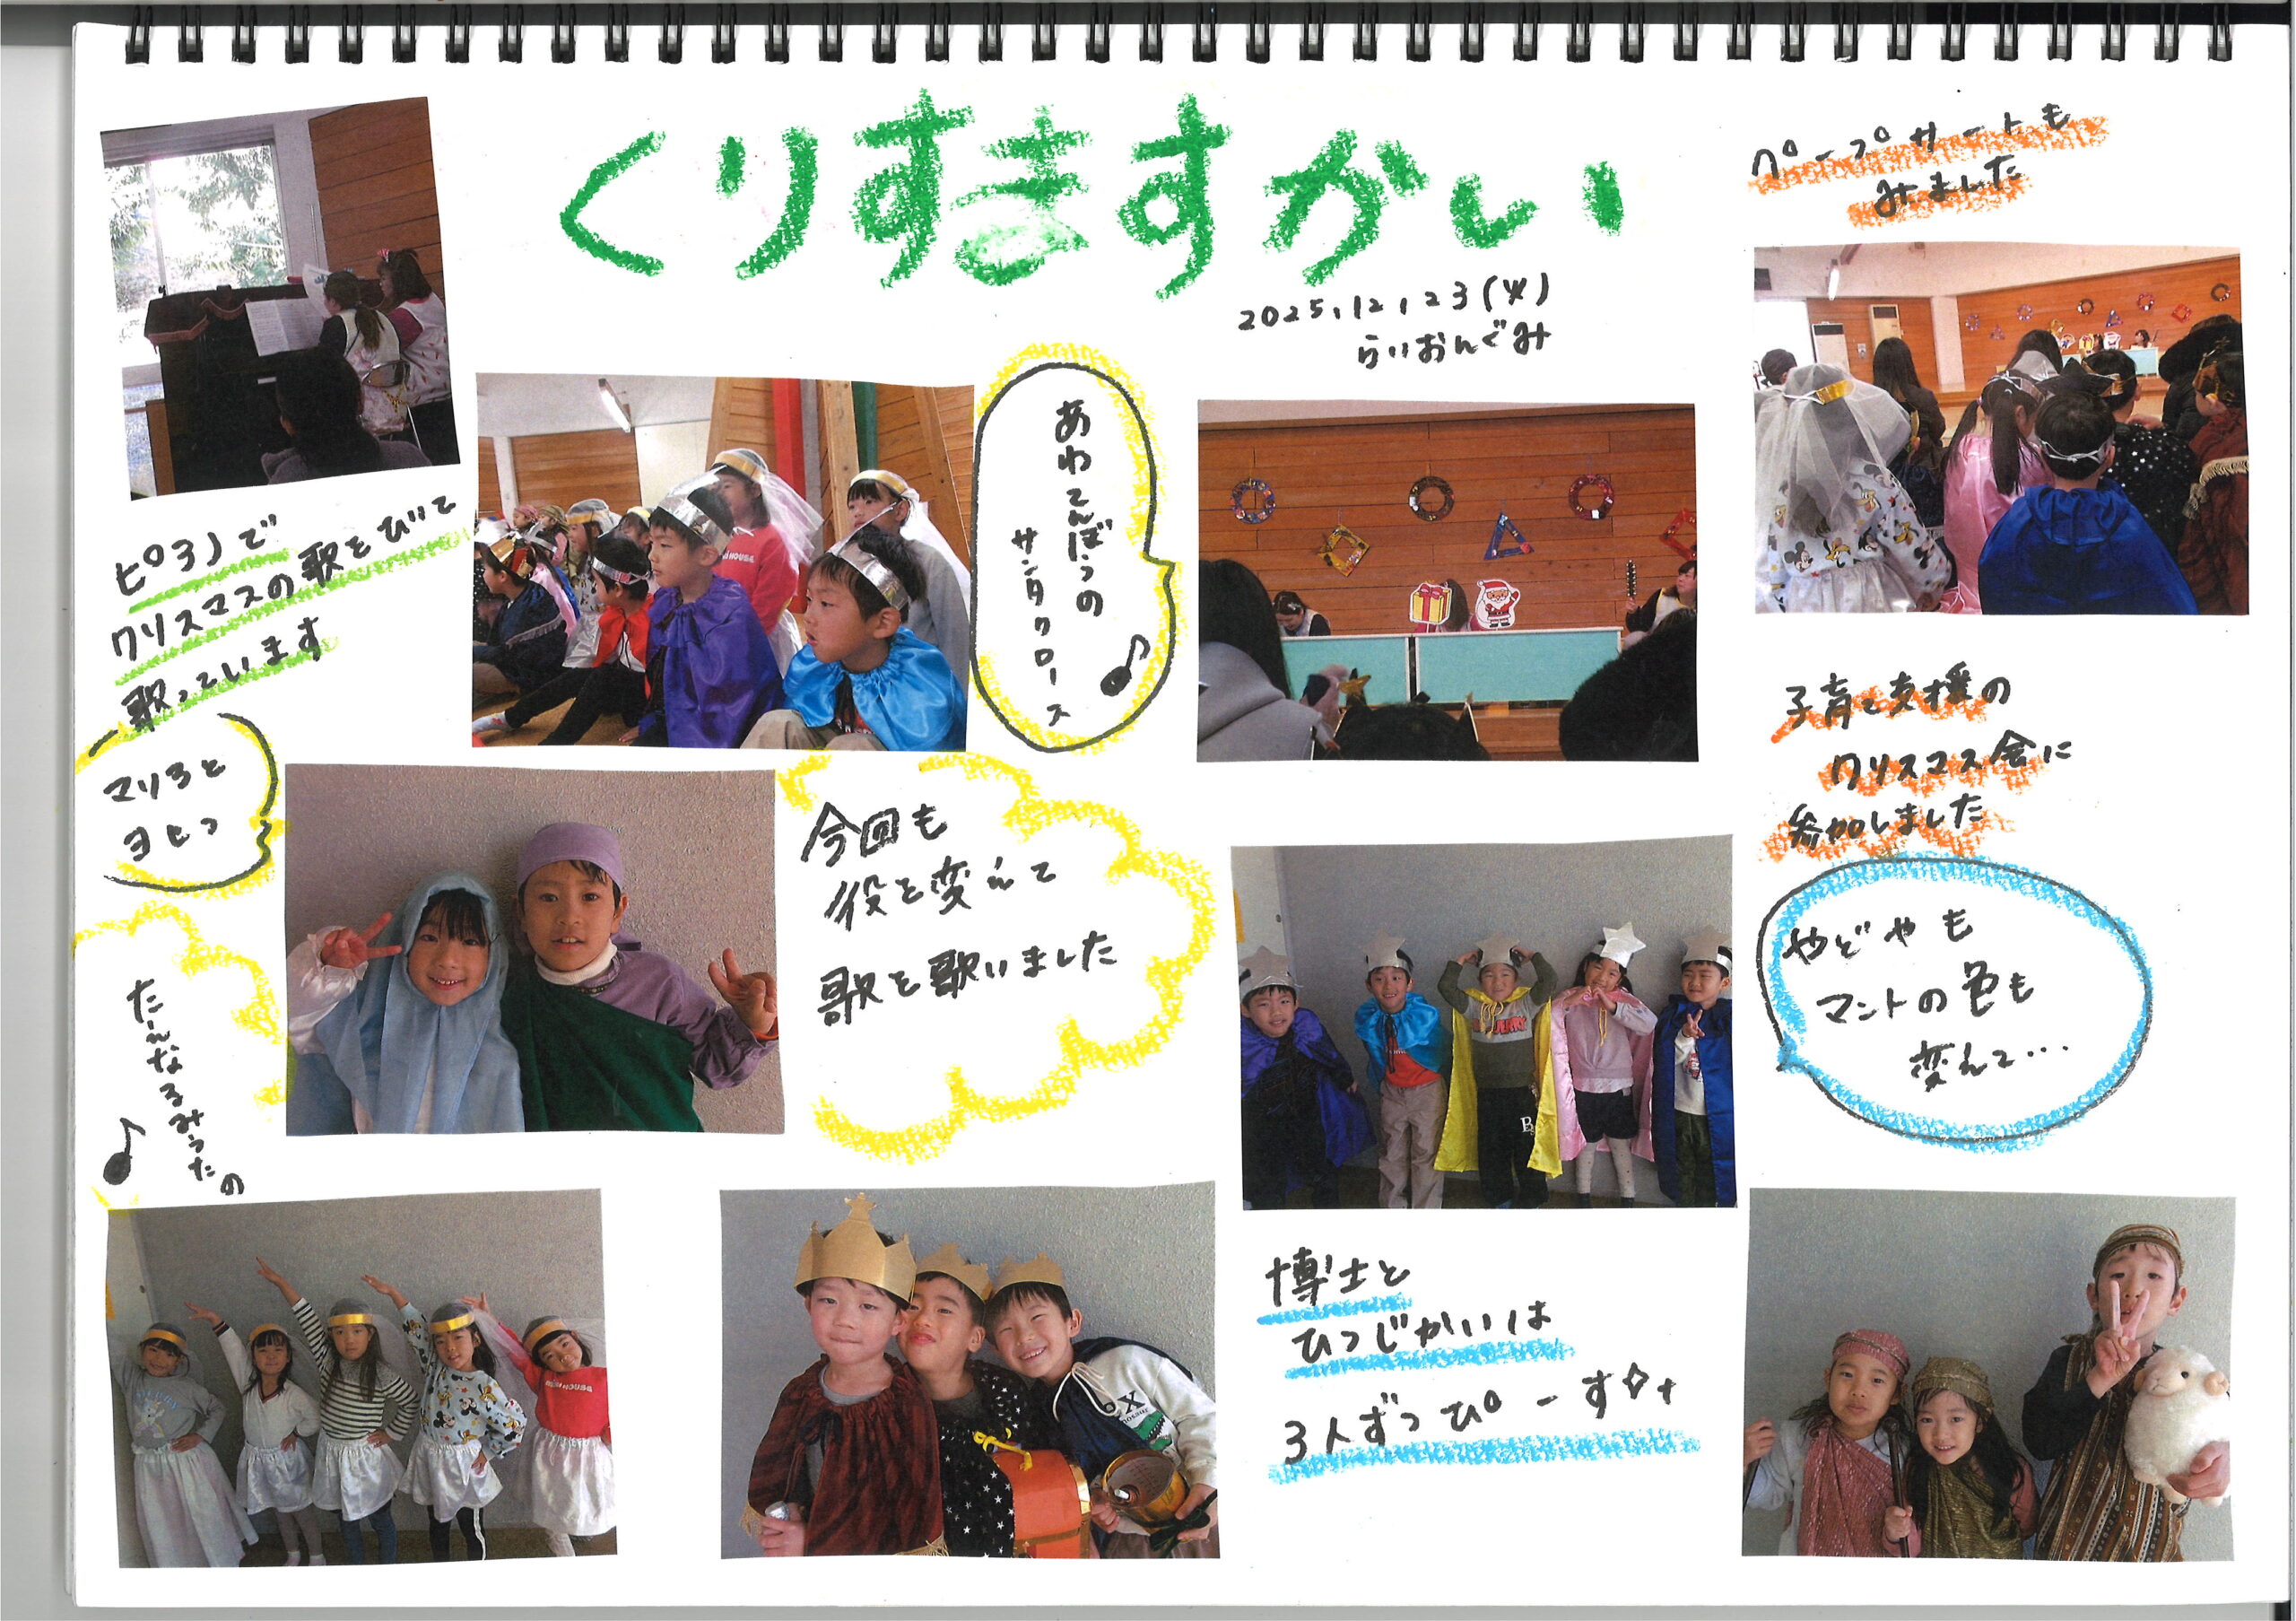 くりすますかい
2025.12.23(火)
らいおんぐみ
ピアノで
クリスマスの歌をひいて
歌っています
あわてんぼうの
サンタクロース
ペープサートも
みました
子育て支援の
クリスマス会に
参加しました
マリアと
ヨセフ
今回も
役を変えて
歌を歌いました
やどやも
マントの色も
変えて…
たーんなるみうたの
博士と
ひつじかいは
3人ずつぴーす